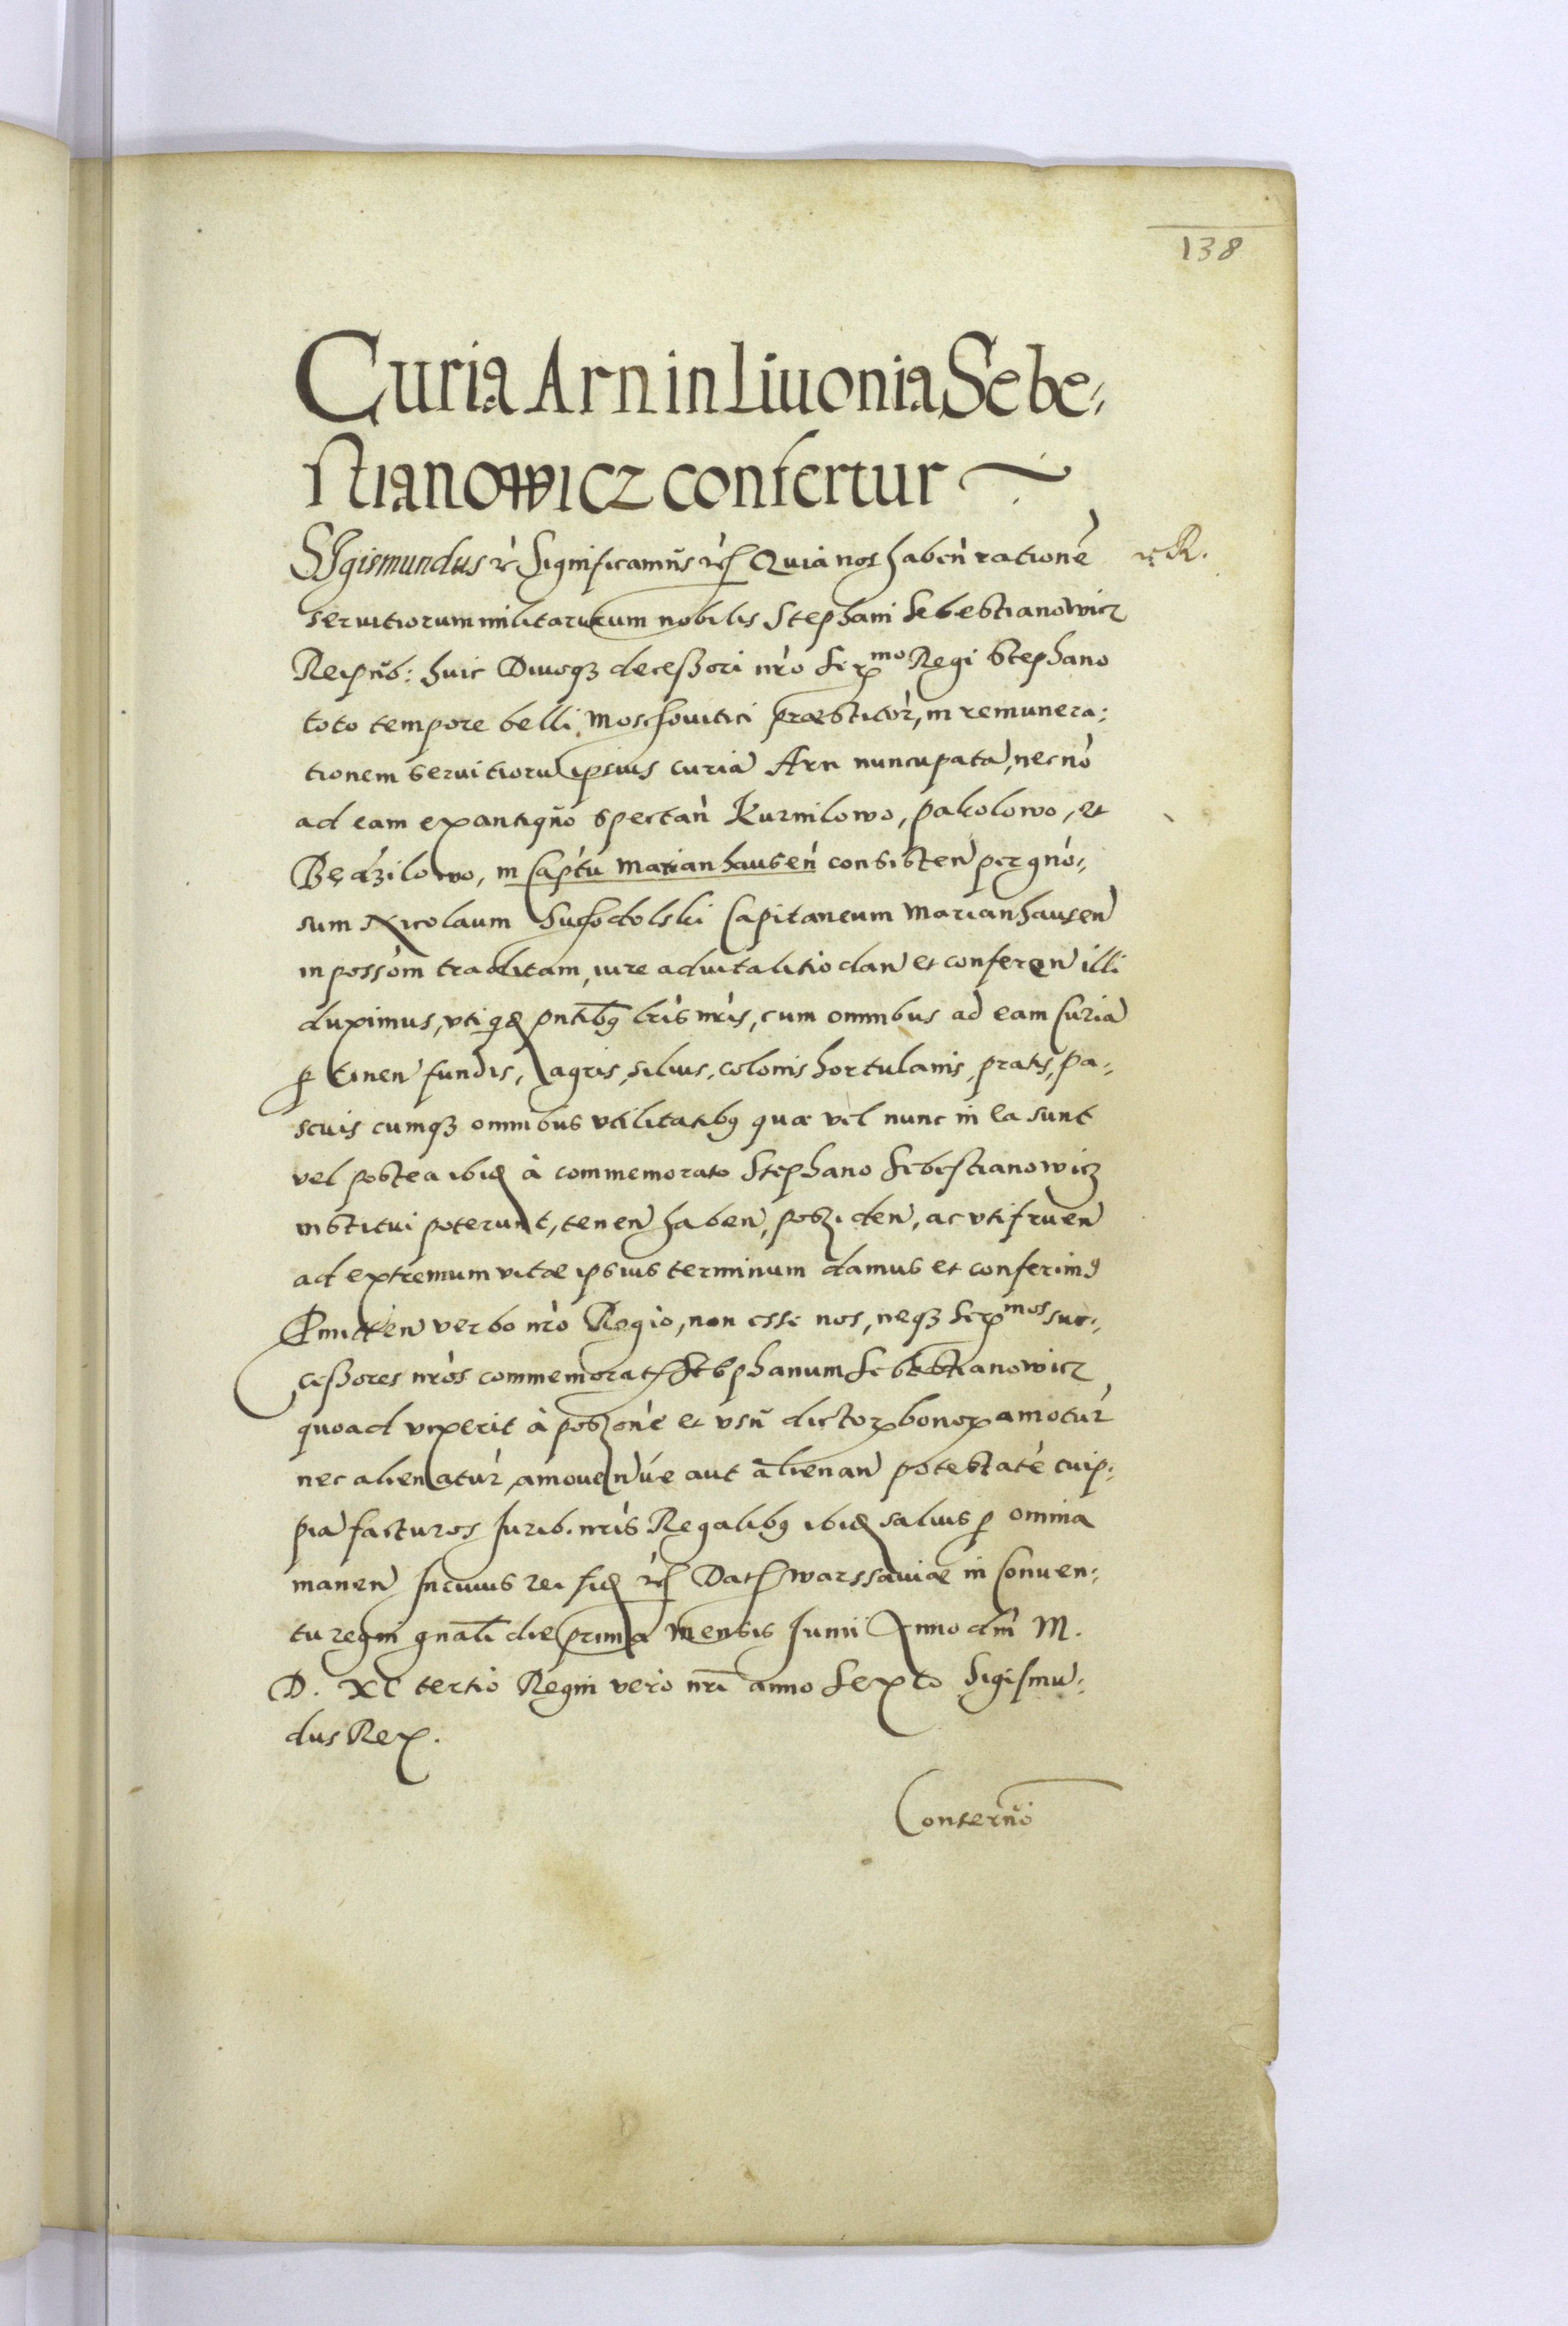 138
Curia Arn in Liuonia Sebe,
stianowicz confertur
Sigismundus etc Significamus etc Quia nos haben rationē etc R.
servitiorum militarium nobilis Stephani Sebestianowicz
Reipub: huic Divoq3 decessori nro Sermo Regi Stephano
toto tempore belli Moschovitici præstitor, in remunera:
tionem servitioru ipsius curiā Arn nuncupatā, necnō
ad eam ex antiquo spectan Kurnilowo, pakolowo, et
Będzilowo, in Captu Marianhausen consisten per gno:
sum Nicolaum Suchodolski Capitaneum Marianhausen
in possom traditam, iure advitalitio dan et conferen illi
duximus, utiqd pntibq lris nris, cum omnibus ad eam Curiā
ptinen fundis, agris, silvis, colonis hortulanis, pratis, pa:
scuis cumq3 omnibus utilitatibq quæ vel nunc in ea sunt
vel postea ibid à commemorato Stephano Sebestianowicz
institui poterunt, tenen haben, possiden, ac utifruen
ad extremum vitæ ipsius terminum damus et conferimq
Pmitten verbo nro Regio, non esse nos, neq3 Sermos suc:
cessores nros commemorat Stephanum Sebestianowicz
quoad vixerit à possone et usu dictor bonor amotur
nec alienatur, amovenve aut alienan potestatē cuip:
piā facturos Jurib. nris Regalibq ibid salvis p omnia
manen In cuius rei fid etc Dat Warssaviæ in Conven:
tu regni gnali die prima mensis Junii Anno dni M.
D. XC tertio Regni vero nri anno Sexto Sigismū:
dus Rex.